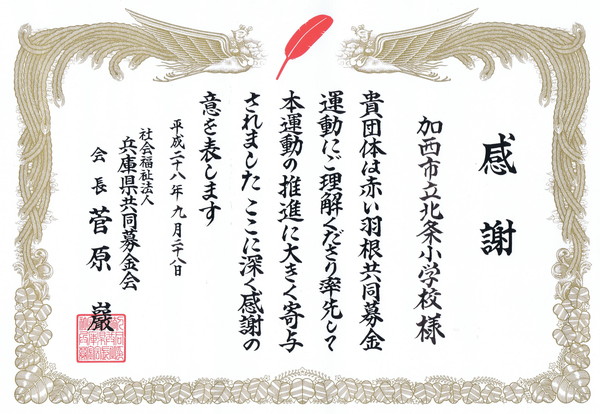 感謝
加西市立北条小学校様
貴団体は赤い羽根共同募金
運動にご理解くださり率先して
本運動の推進に大きく寄与
されました ここに深く感謝の
意を表します
平成二十八年九月二十八日
社会福祉法人
兵庫県共同募金会
会長 菅原 巖